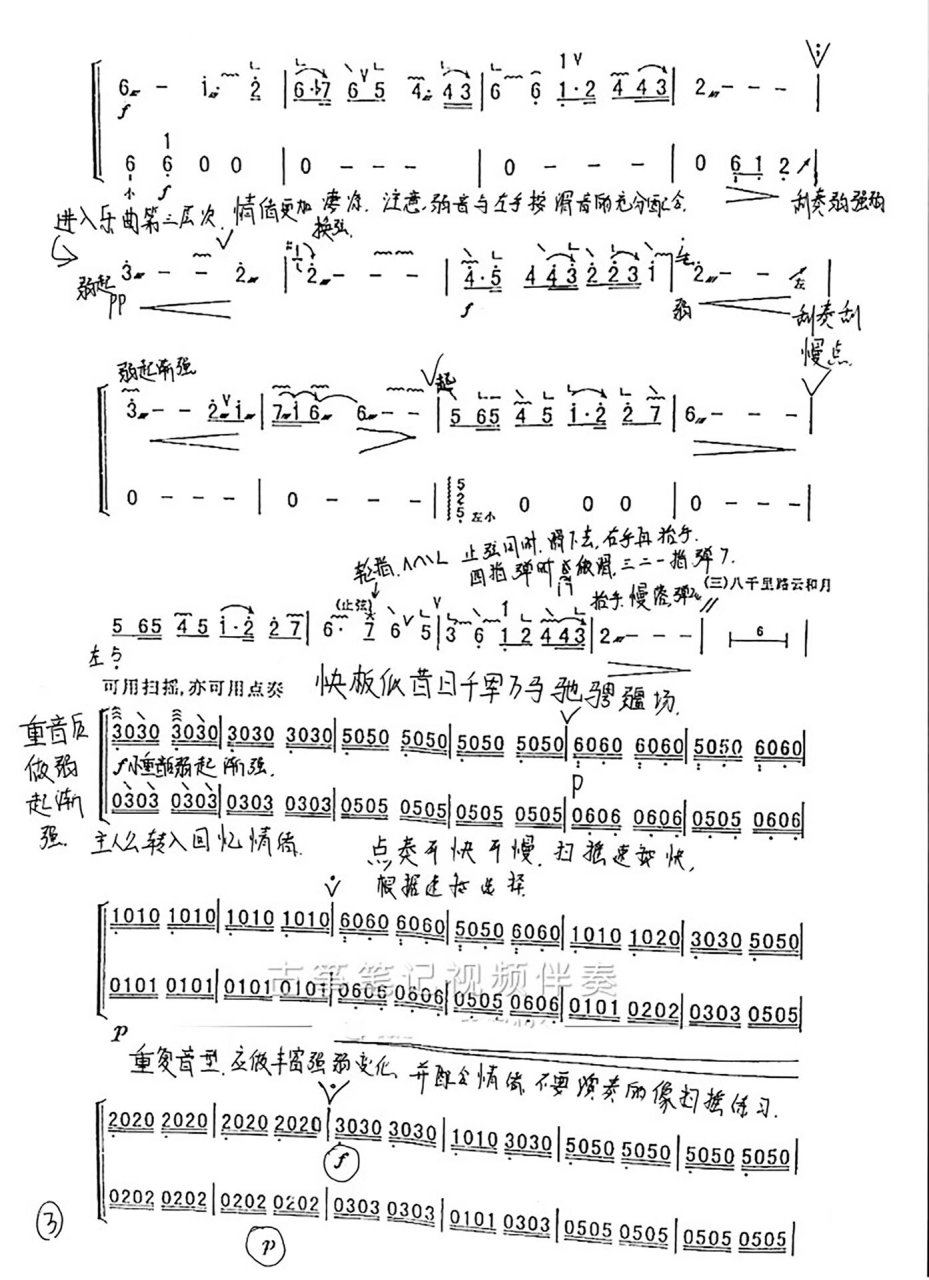 6 - i 2 | 6·♭7 6 5 4· 43 | 6 6 1·2 4 43 | 2 - - - |
f
6 6 0 0 | 0 - - - | 0 - - - | 0 6 1 2 |
小 f
进入乐曲第二层次,情绪更加凄凉.注意,弱音与左手按滑音的充分配合.
刮奏弱强弱
换弦
弱起
3 - - 2 | 2 - - - | 4·5 4 43 2 23 i | 2 - - |
pp
f
弱
左
刮奏刮
慢点
弱起渐强
起
3 - - 2 i | 7 i 6 6 - - | 5 65 4 5 i·2 2 7 | 6 - - - |
0 - - - | 0 - - - | 5 2 5 0 0 0 | 0 - - - |
左小
轮指. 止弦同时.滑下去,右手再抬手.
四指弹时 做滑,三二一指弹7.
抬手.慢落,弹2
(三)八千里路云和月
(止弦)
5 65 4 5 i·2 2 7 | 6· 7 6 5 | 3 6 1 2 4 43 | 2 - - - | 6
左5
可用扫摇,亦可用点奏
快板似昔日千军万马驰骋疆场.
重音后
做弱
起渐
强.
3030 3030 | 3030 3030 | 5050 5050 | 5050 5050 | 6060 6060 | 5050 6060 |
弱起渐强.
p
0303 0303 | 0303 0303 | 0505 0505 | 0505 0505 | 0606 0606 | 0505 0606 |
主人公转入回忆情绪.
点奏不快不慢.扫摇速要快,
根据 选择
1010 1010 | 1010 1010 | 6060 6060 | 5050 6060 | 1010 1020 | 3030 5050 |
古筝笔记视频伴奏
0101 0101 | 0101 0101 | 0606 0606 | 0505 0606 | 0101 0202 | 0303 0505 |
p
重复音型.应做丰富强弱变化,并配合情绪,不要演奏的像扫摇练习.
2020 2020 | 2020 2020 | 3030 3030 | 1010 3030 | 5050 5050 | 5050 5050 |
f
0202 0202 | 0202 0202 | 0303 0303 | 0101 0303 | 0505 0505 | 0505 0505 |
p
③